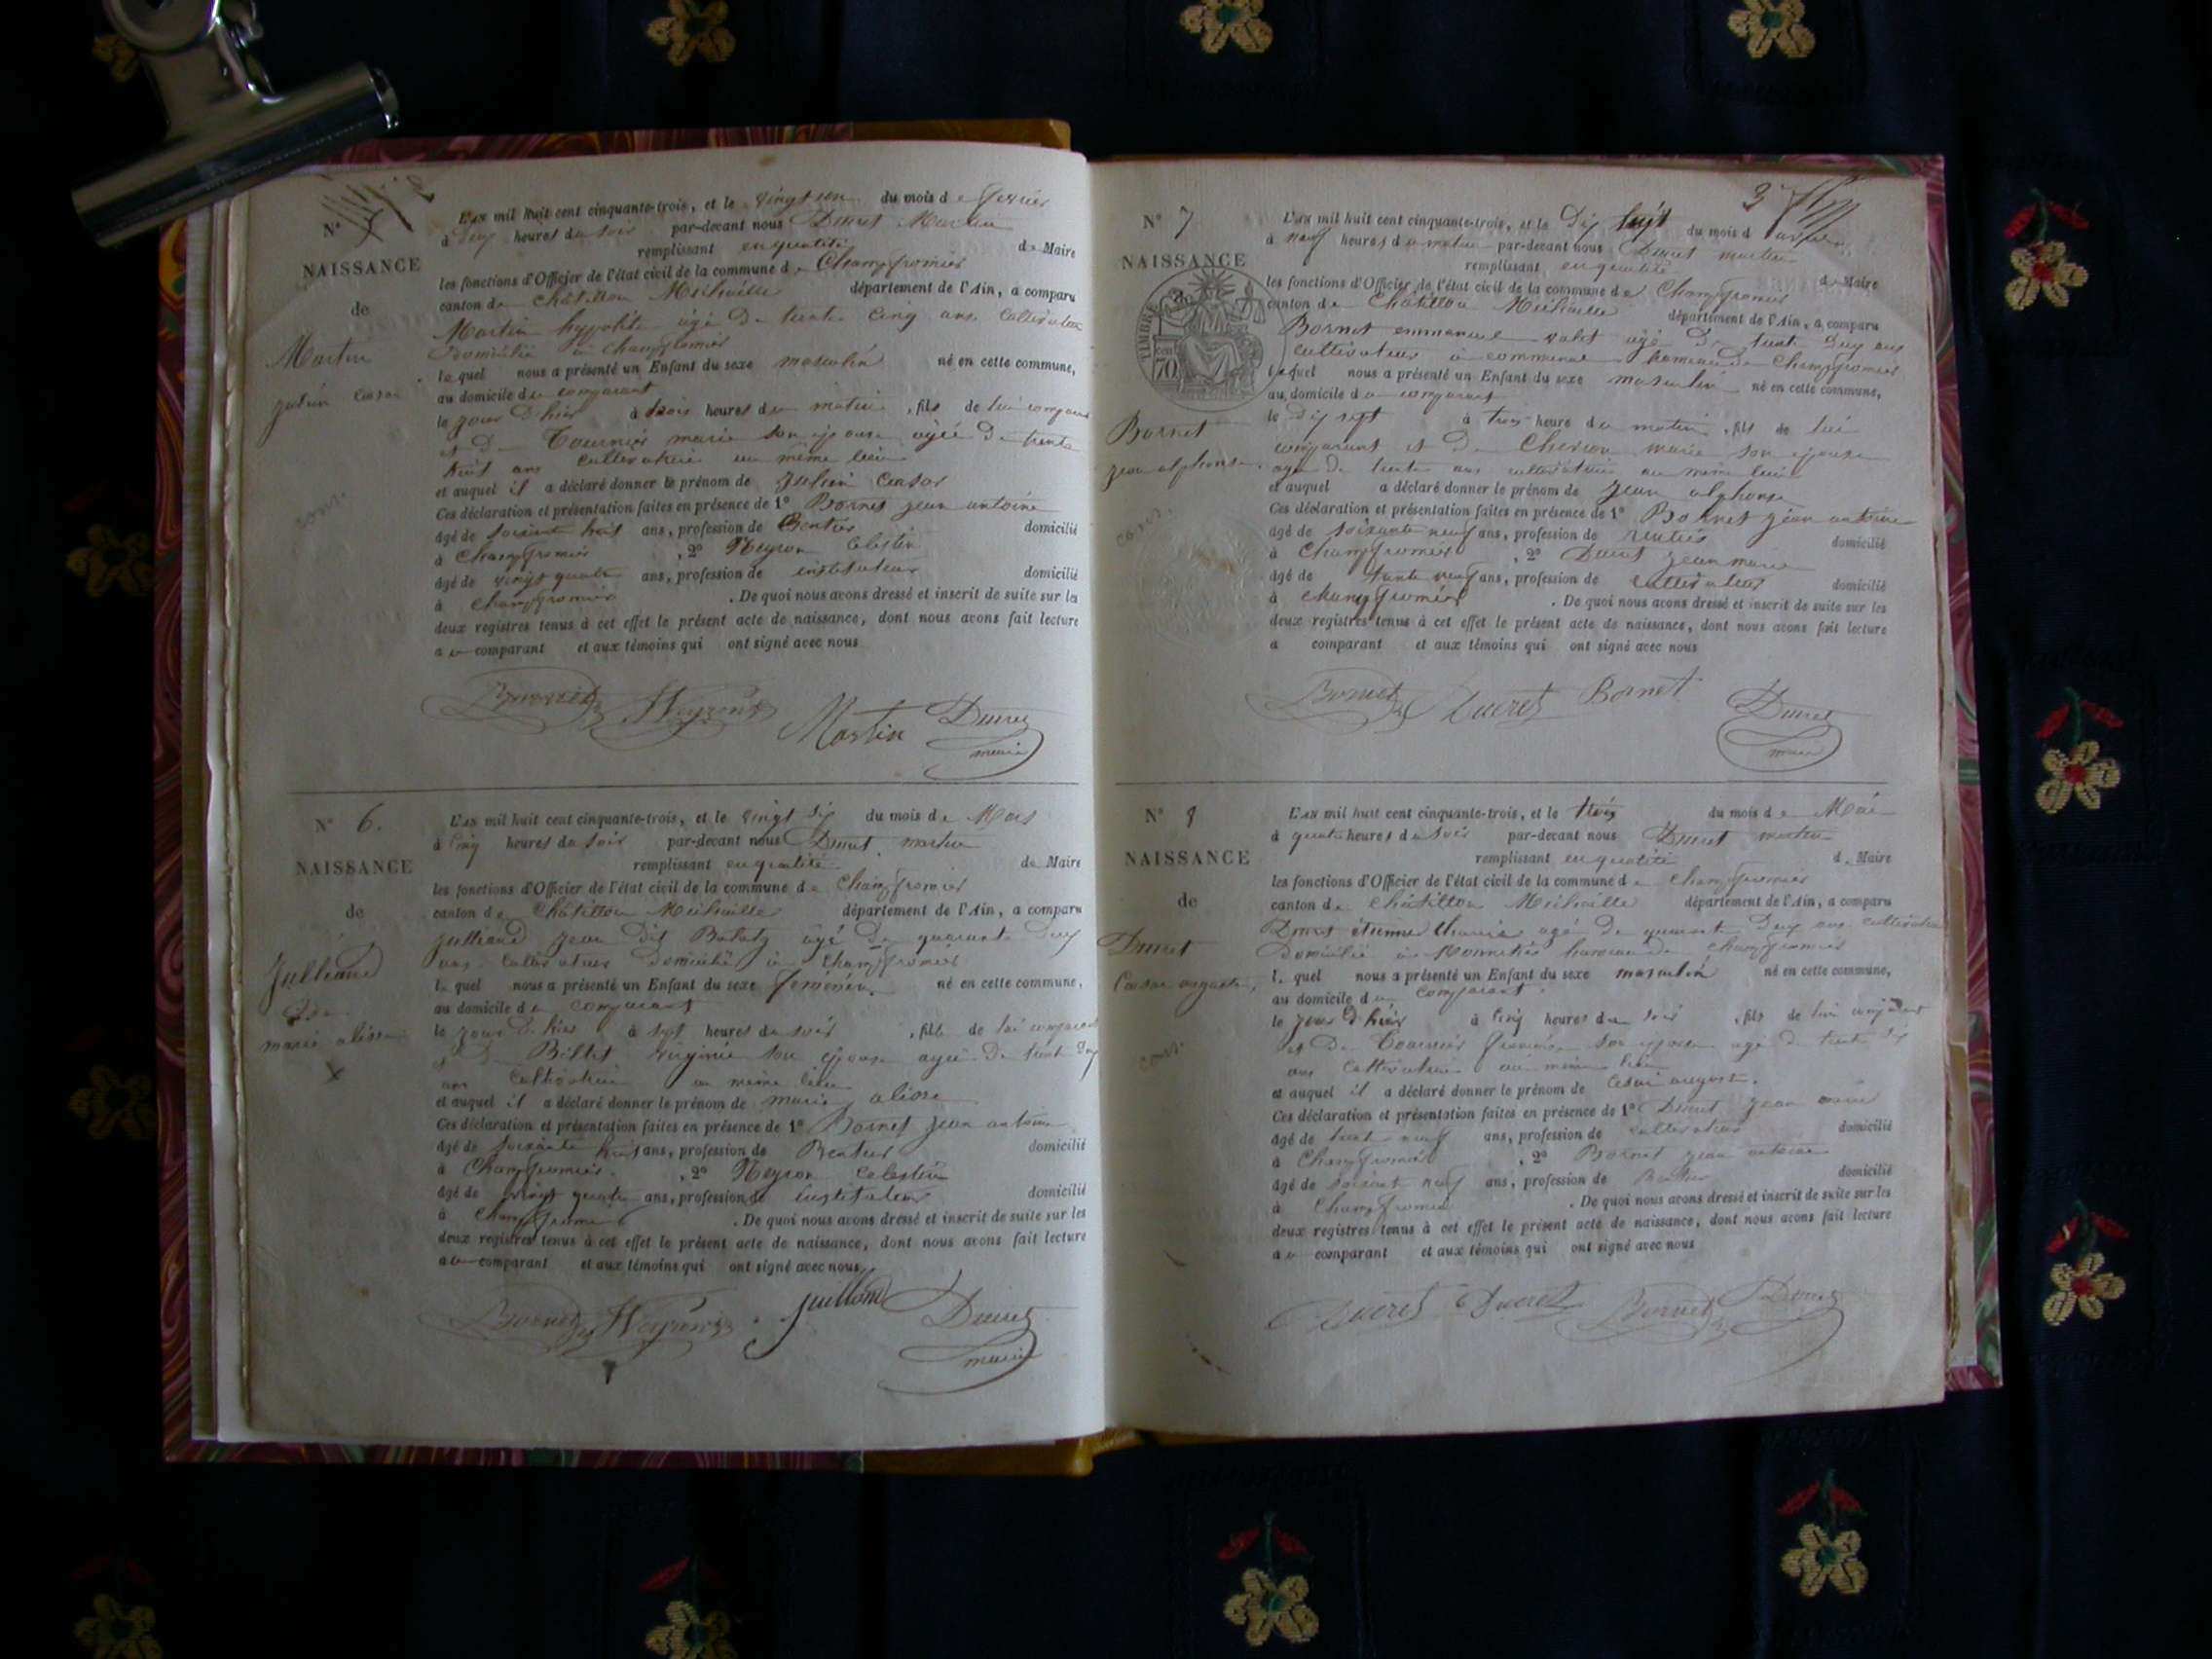 N°
NAISSANCE
de
Martin
julien Cesar
L'an mil huit cent cinquante-trois, et le vingt du mois de fevrier
à heures du soir par-devant nous Ducret Martin
remplissant en qualité de Maire
les fonctions d'Officier de l'état civil de la commune de Champfromier
canton de Châtillon Michaille département de l'Ain, a comparu
Martin hypolite âgé de trente cinq ans cultivateur
domicilié à champfromier
lequel nous a présenté un Enfant du sexe masculin né en cette commune,
au domicile du comparant
le jour d'hier à trois heures du matin, fils de lui comparant
et de Tournier marie son épouse agée de trente
huit ans cultivatrice au même lieu
et auquel il a déclaré donner le prénom de Julien Cesar
Ces déclaration et présentation faites en présence de 1° Bornet jean antoine
âgé de soixante huit ans, profession de Rentier domicilié
à Champfromier, 2° Neyron Celestin
âgé de vingt quatre ans, profession de instituteur domicilié
à Champfromier. De quoi nous avons dressé et inscrit de suite sur les
deux registres tenus à cet effet le présent acte de naissance, dont nous avons fait lecture
au comparant et aux témoins qui ont signé avec nous
Bornet Neyron Martin Ducret
maire
N° 6.
NAISSANCE
de
Julliand
marie
L'an mil huit cent cinquante-trois, et le vingt six du mois de Mars
à cinq heures du soir par-devant nous Ducret martin
remplissant en qualité de Maire
les fonctions d'Officier de l'état civil de la commune de Champfromier
canton de Châtillon Michaille département de l'Ain, a comparu
Julliand Jean dit âgé de quarante deux
ans cultivateur domicilié à Champfromier
lequel nous a présenté un Enfant du sexe féminin né en cette commune,
au domicile du comparant
le jour d'hier à sept heures du soir, fille de lui comparant
et de virginie son épouse agée de trente
ans cultivatrice au même lieu
et auquel il a déclaré donner le prénom de marie
Ces déclaration et présentation faites en présence de 1° Bornet jean antoine
âgé de soixante huit ans, profession de Rentier domicilié
à Champfromier, 2° Neyron Celestin
âgé de vingt quatre ans, profession de instituteur domicilié
à Champfromier. De quoi nous avons dressé et inscrit de suite sur les
deux registres tenus à cet effet le présent acte de naissance, dont nous avons fait lecture
au comparant et aux témoins qui ont signé avec nous
Bornet Neyron Juilland Ducret
maire
3
N° 7
NAISSANCE
TIMBRE
70
Bornet
jean alphonse
L'an mil huit cent cinquante-trois, et le Dix huit du mois d'avril
à neuf heures du matin par-devant nous Ducret martin
remplissant en qualité de Maire
les fonctions d'Officier de l'état civil de la commune de Champfromier
canton de Châtillon Michaille département de l'Ain, a comparu
Bornet emmanuel âgé de trente deux ans
cultivateur à communal hameau de Champfromier
lequel nous a présenté un Enfant du sexe masculin né en cette commune,
au domicile du comparant
le dix sept à trois heure du matin, fils de lui
comparant et de marie son épouse
agée de trente ans cultivatrice au même lieu
et auquel a déclaré donner le prénom de Jean alphonse
Ces déclaration et présentation faites en présence de 1° Bornet jean antoine
âgé de soixante neuf ans, profession de rentier domicilié
à Champfromier, 2° Ducret jean marie
âgé de trente neuf ans, profession de cultivateur domicilié
à champfromier. De quoi nous avons dressé et inscrit de suite sur les
deux registres tenus à cet effet le présent acte de naissance, dont nous avons fait lecture
à comparant et aux témoins qui ont signé avec nous
Bornet Ducret Bornet Ducret
maire
N° 8
NAISSANCE
de
Ducret
Cesar auguste
L'an mil huit cent cinquante-trois, et le trois du mois de Mai
à quatre heures du soir par-devant nous Ducret martin
remplissant en qualité de Maire
les fonctions d'Officier de l'état civil de la commune de Champfromier
canton de Châtillon Michaille département de l'Ain, a comparu
Ducret étienne agé de quarante deux ans cultivateur
domicilié à Monnetier hameau de champfromier
lequel nous a présenté un Enfant du sexe masculin né en cette commune,
au domicile du comparant
le jour d'hier à cinq heures du soir, fils de lui comparant
et de Tournier son épouse agé de trente six
ans cultivatrice au même lieu
et auquel il a déclaré donner le prénom de Cesar auguste.
Ces déclaration et présentation faites en présence de 1° Ducret jean marie
âgé de trente neuf ans, profession de cultivateur domicilié
à Champfromier, 2° Bornet jean antoine
âgé de soixante neuf ans, profession de Rentier domicilié
à Champfromier. De quoi nous avons dressé et inscrit de suite sur les
deux registres tenus à cet effet le présent acte de naissance, dont nous avons fait lecture
au comparant et aux témoins qui ont signé avec nous
Ducret Ducret Bornet Ducret